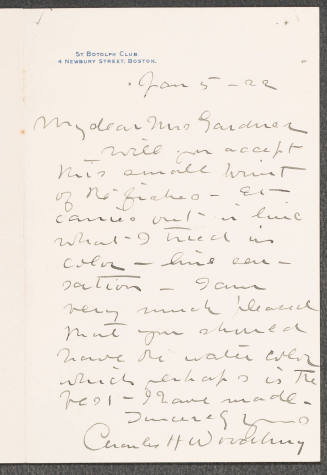 ST BOTOLPH CLUB
4 NEWBURY STREET, BOSTON.
Jan 5 - 22
My dear Mrs Gardner
Will you accept
this small print
of the fishes - It
carries out in line
what I tried in
color - line sen-
sation - I am
very much pleased
that you should
have the water color
which perhaps is the
best I have made -
Sincerely yours
Charles H Woodbury